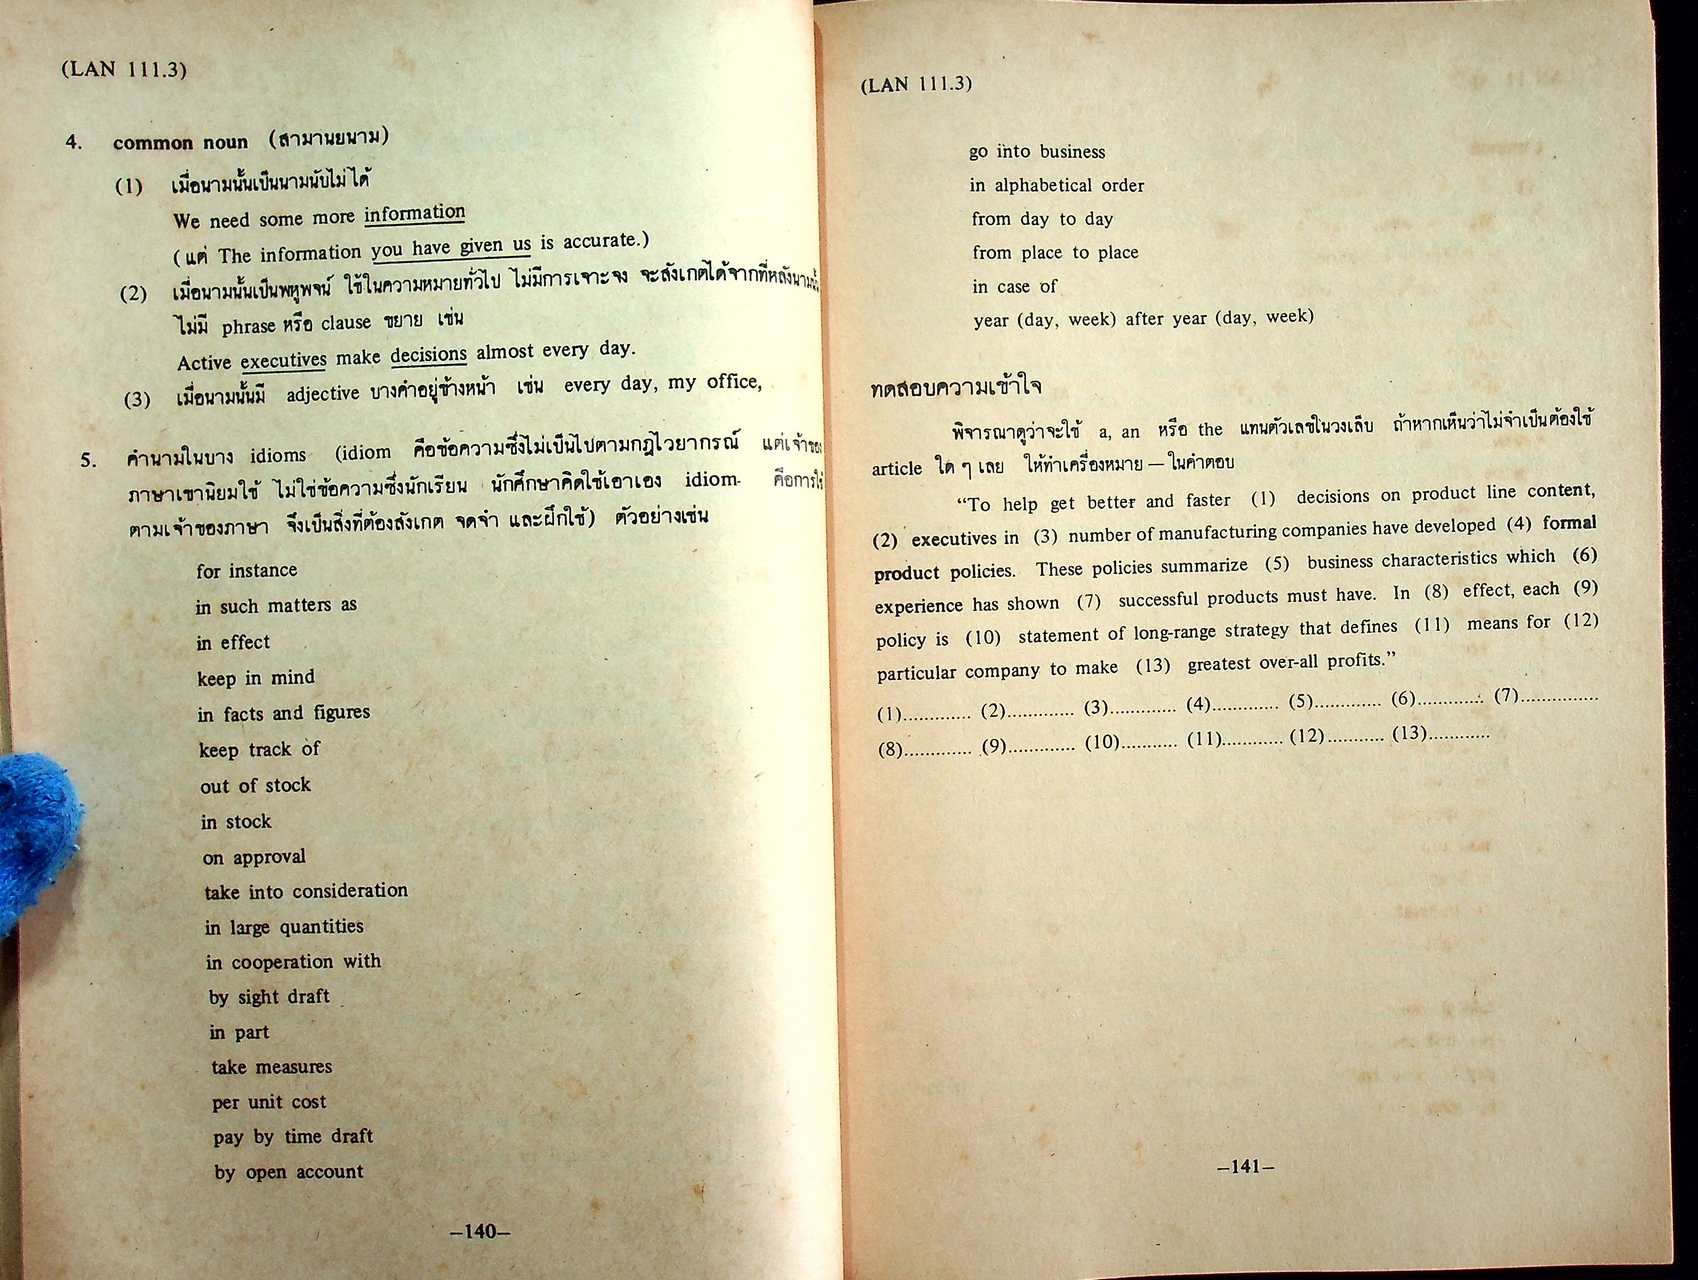 (LAN 111.3)
4. common noun (สามานยนาม)
(1) เมื่อนามนั้นเป็นนามนับไม่ได้
We need some more information
(แต่ The information you have given us is accurate.)
(2) เมื่อนามนั้นเป็นพหูพจน์ ใช้ในความหมายทั่วไป ไม่มีการเจาะจง จะสังเกตได้จากที่หลังนามนั้น
ไม่มี phrase หรือ clause ขยาย เช่น
Active executives make decisions almost every day.
(3) เมื่อนามนั้นมี adjective บางคำอยู่ข้างหน้า เช่น every day, my office,
5. คำนามในบาง idioms (idiom คือข้อความซึ่งไม่เป็นไปตามกฎไวยากรณ์ แต่เจ้าของ
ภาษาเขานิยมใช้ ไม่ใช่ข้อความซึ่งนักเรียน นักศึกษาคิดใช้เอาเอง idiom คือการใช้
ตามเจ้าของภาษา จึงเป็นสิ่งที่ต้องสังเกต จดจำ และฝึกใช้) ตัวอย่างเช่น
for instance
in such matters as
in effect
keep in mind
in facts and figures
keep track of
out of stock
in stock
on approval
take into consideration
in large quantities
in cooperation with
by sight draft
in part
take measures
per unit cost
pay by time draft
by open account
–140–
(LAN 111.3)
go into business
in alphabetical order
from day to day
from place to place
in case of
year (day, week) after year (day, week)
ทดสอบความเข้าใจ
พิจารณาดูว่าจะใช้ a, an หรือ the แทนตัวเลขในวงเล็บ ถ้าหากเห็นว่าไม่จำเป็นต้องใช้
article ใด ๆ เลย ให้ทำเครื่องหมาย — ในคำตอบ
“To help get better and faster (1) decisions on product line content,
(2) executives in (3) number of manufacturing companies have developed (4) formal
product policies. These policies summarize (5) business characteristics which (6)
experience has shown (7) successful products must have. In (8) effect, each (9)
policy is (10) statement of long-range strategy that defines (11) means for (12)
particular company to make (13) greatest over-all profits.”
(1)............. (2)............. (3)............. (4)............. (5)............. (6)............. (7)...............
(8)............. (9)............. (10)........... (11)............ (12)........... (13)............
–141–